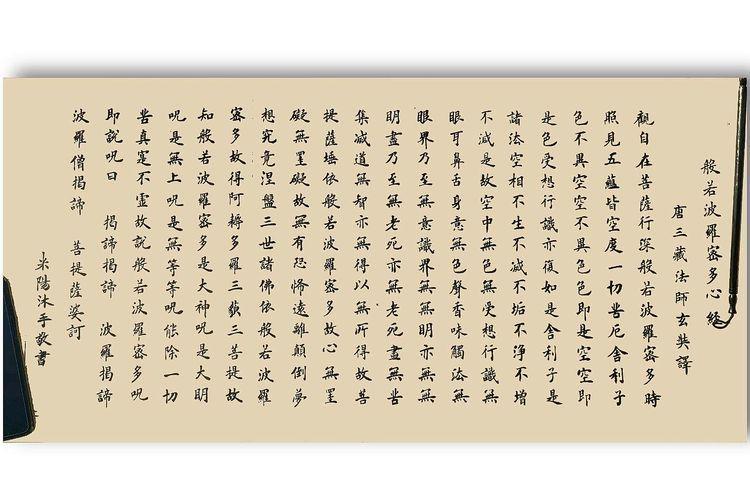 般若波羅蜜多心經
唐三藏法師玄奘譯
觀自在菩薩行深般若波羅蜜多時
照見五蘊皆空度一切苦厄舍利子
色不異空空不異色色即是空空即
是色受想行識亦復如是舍利子是
諸法空相不生不滅不垢不淨不增
不減是故空中無色無受想行識無
眼耳鼻舌身意無色聲香味觸法無
眼界乃至無意識界無無明亦無無
明盡乃至無老死亦無老死盡無苦
集滅道無智亦無得以無所得故菩
提薩埵依般若波羅蜜多故心無罣
礙無罣礙故無有恐怖遠離顛倒夢
想究竟涅盤三世諸佛依般若波羅
蜜多故得阿耨多羅三藐三菩提故
知般若波羅蜜多是大神呪是大明
呪是無上呪是無等等呪能除一切
苦真實不虛故說般若波羅蜜多呪
即說呪曰 揭諦揭諦 波羅揭諦
波羅僧揭諦 菩提薩婆訶
米陽沐手敬書